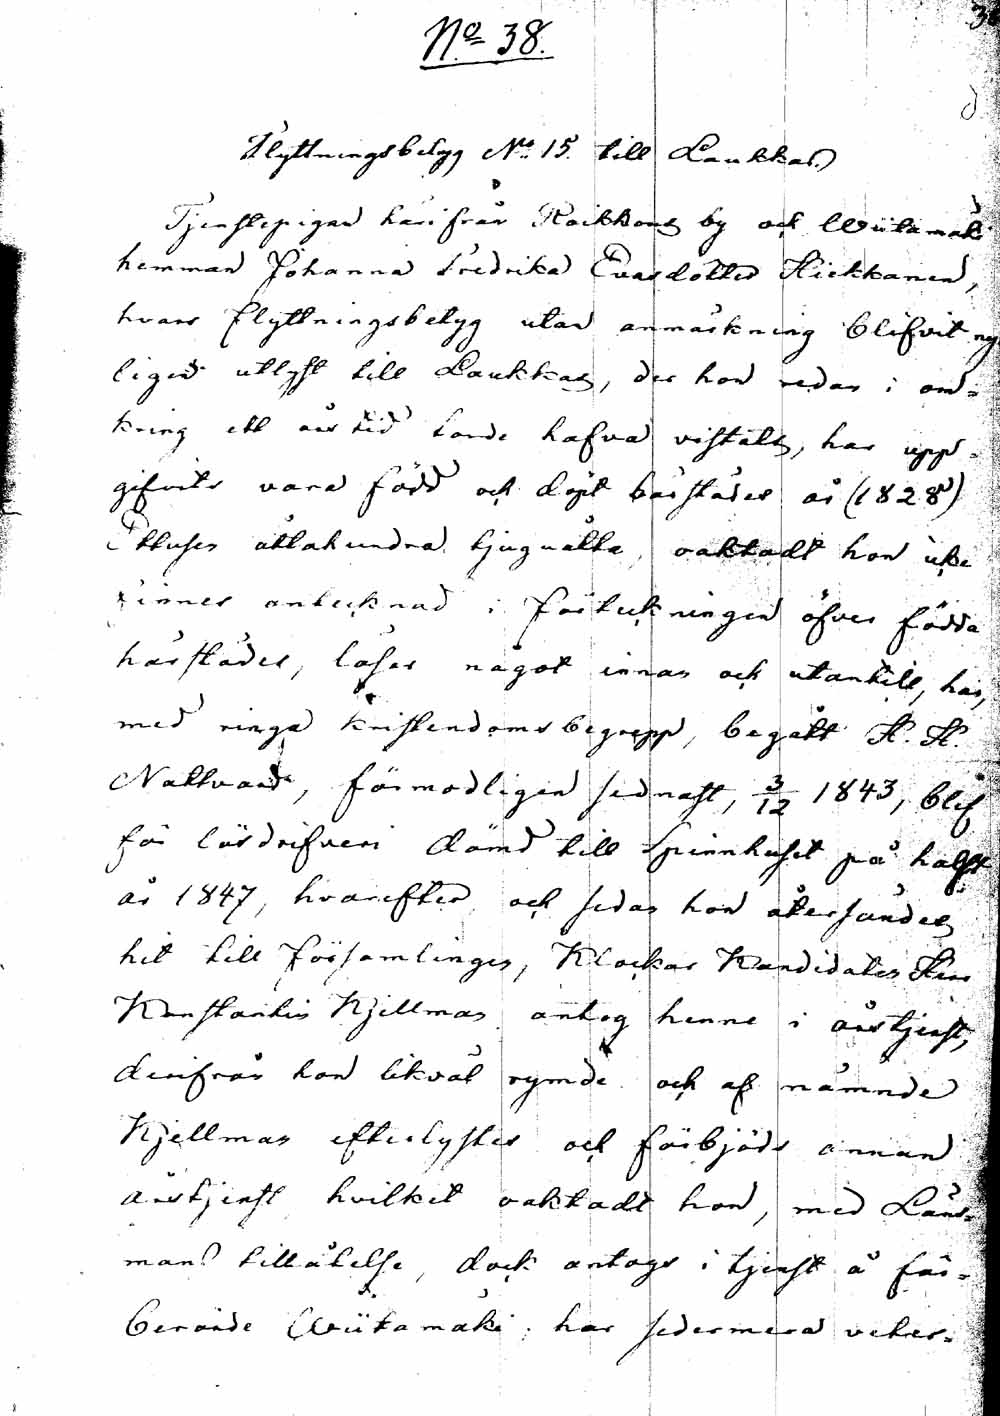 No 38.
Flyttningsbetyg No 15. till Laukkas.
Tjenstepigan härifrån Koikkons by och Wiitamäki
hemman Johanna Fredrika Evasdotter Hiekkanen,
hvars flyttningsbetyg utan anmärkning blifvit ny
ligen utlyst till Laukkas, der hon redan i om-
kring ett års tid torde hafva vistats, har upp-
gifvits vara född och döpt härstädes år (1828)
Ettusen åttahundra tjuguåtta, oaktadt hon icke
finnes antecknad i förteckningen öfver födda
härstädes, läser något innan och utantill, har,
med ringa kristendomsbegrepp, begått H. H.
Nattvard, förmodligen sednast, 3/12 1843, blef
för lösdrifveri dömd till Spinnhuset på halft
år 1847, hvarefter och sedan hon återsändes
hit till församlingen, Klockar Kandidaten Herr
Konstantin Kjellman antog henne i årstjenst,
derifrån hon likväl rymde och af nämnde
Kjellman efterlystes och förbjöds annan
årstjenst hvilket oaktadt hon, med Läns-
mans tillåtelse, dock antogs i tjenst å för-
berörde Wiitamäki, har sedermera veter-